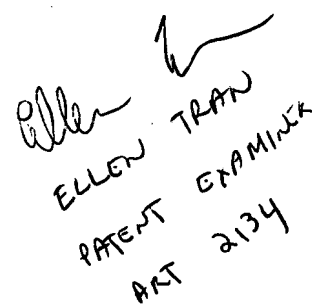 Ellen Tran
ELLEN TRAN
PATENT EXAMINER
ART 2134